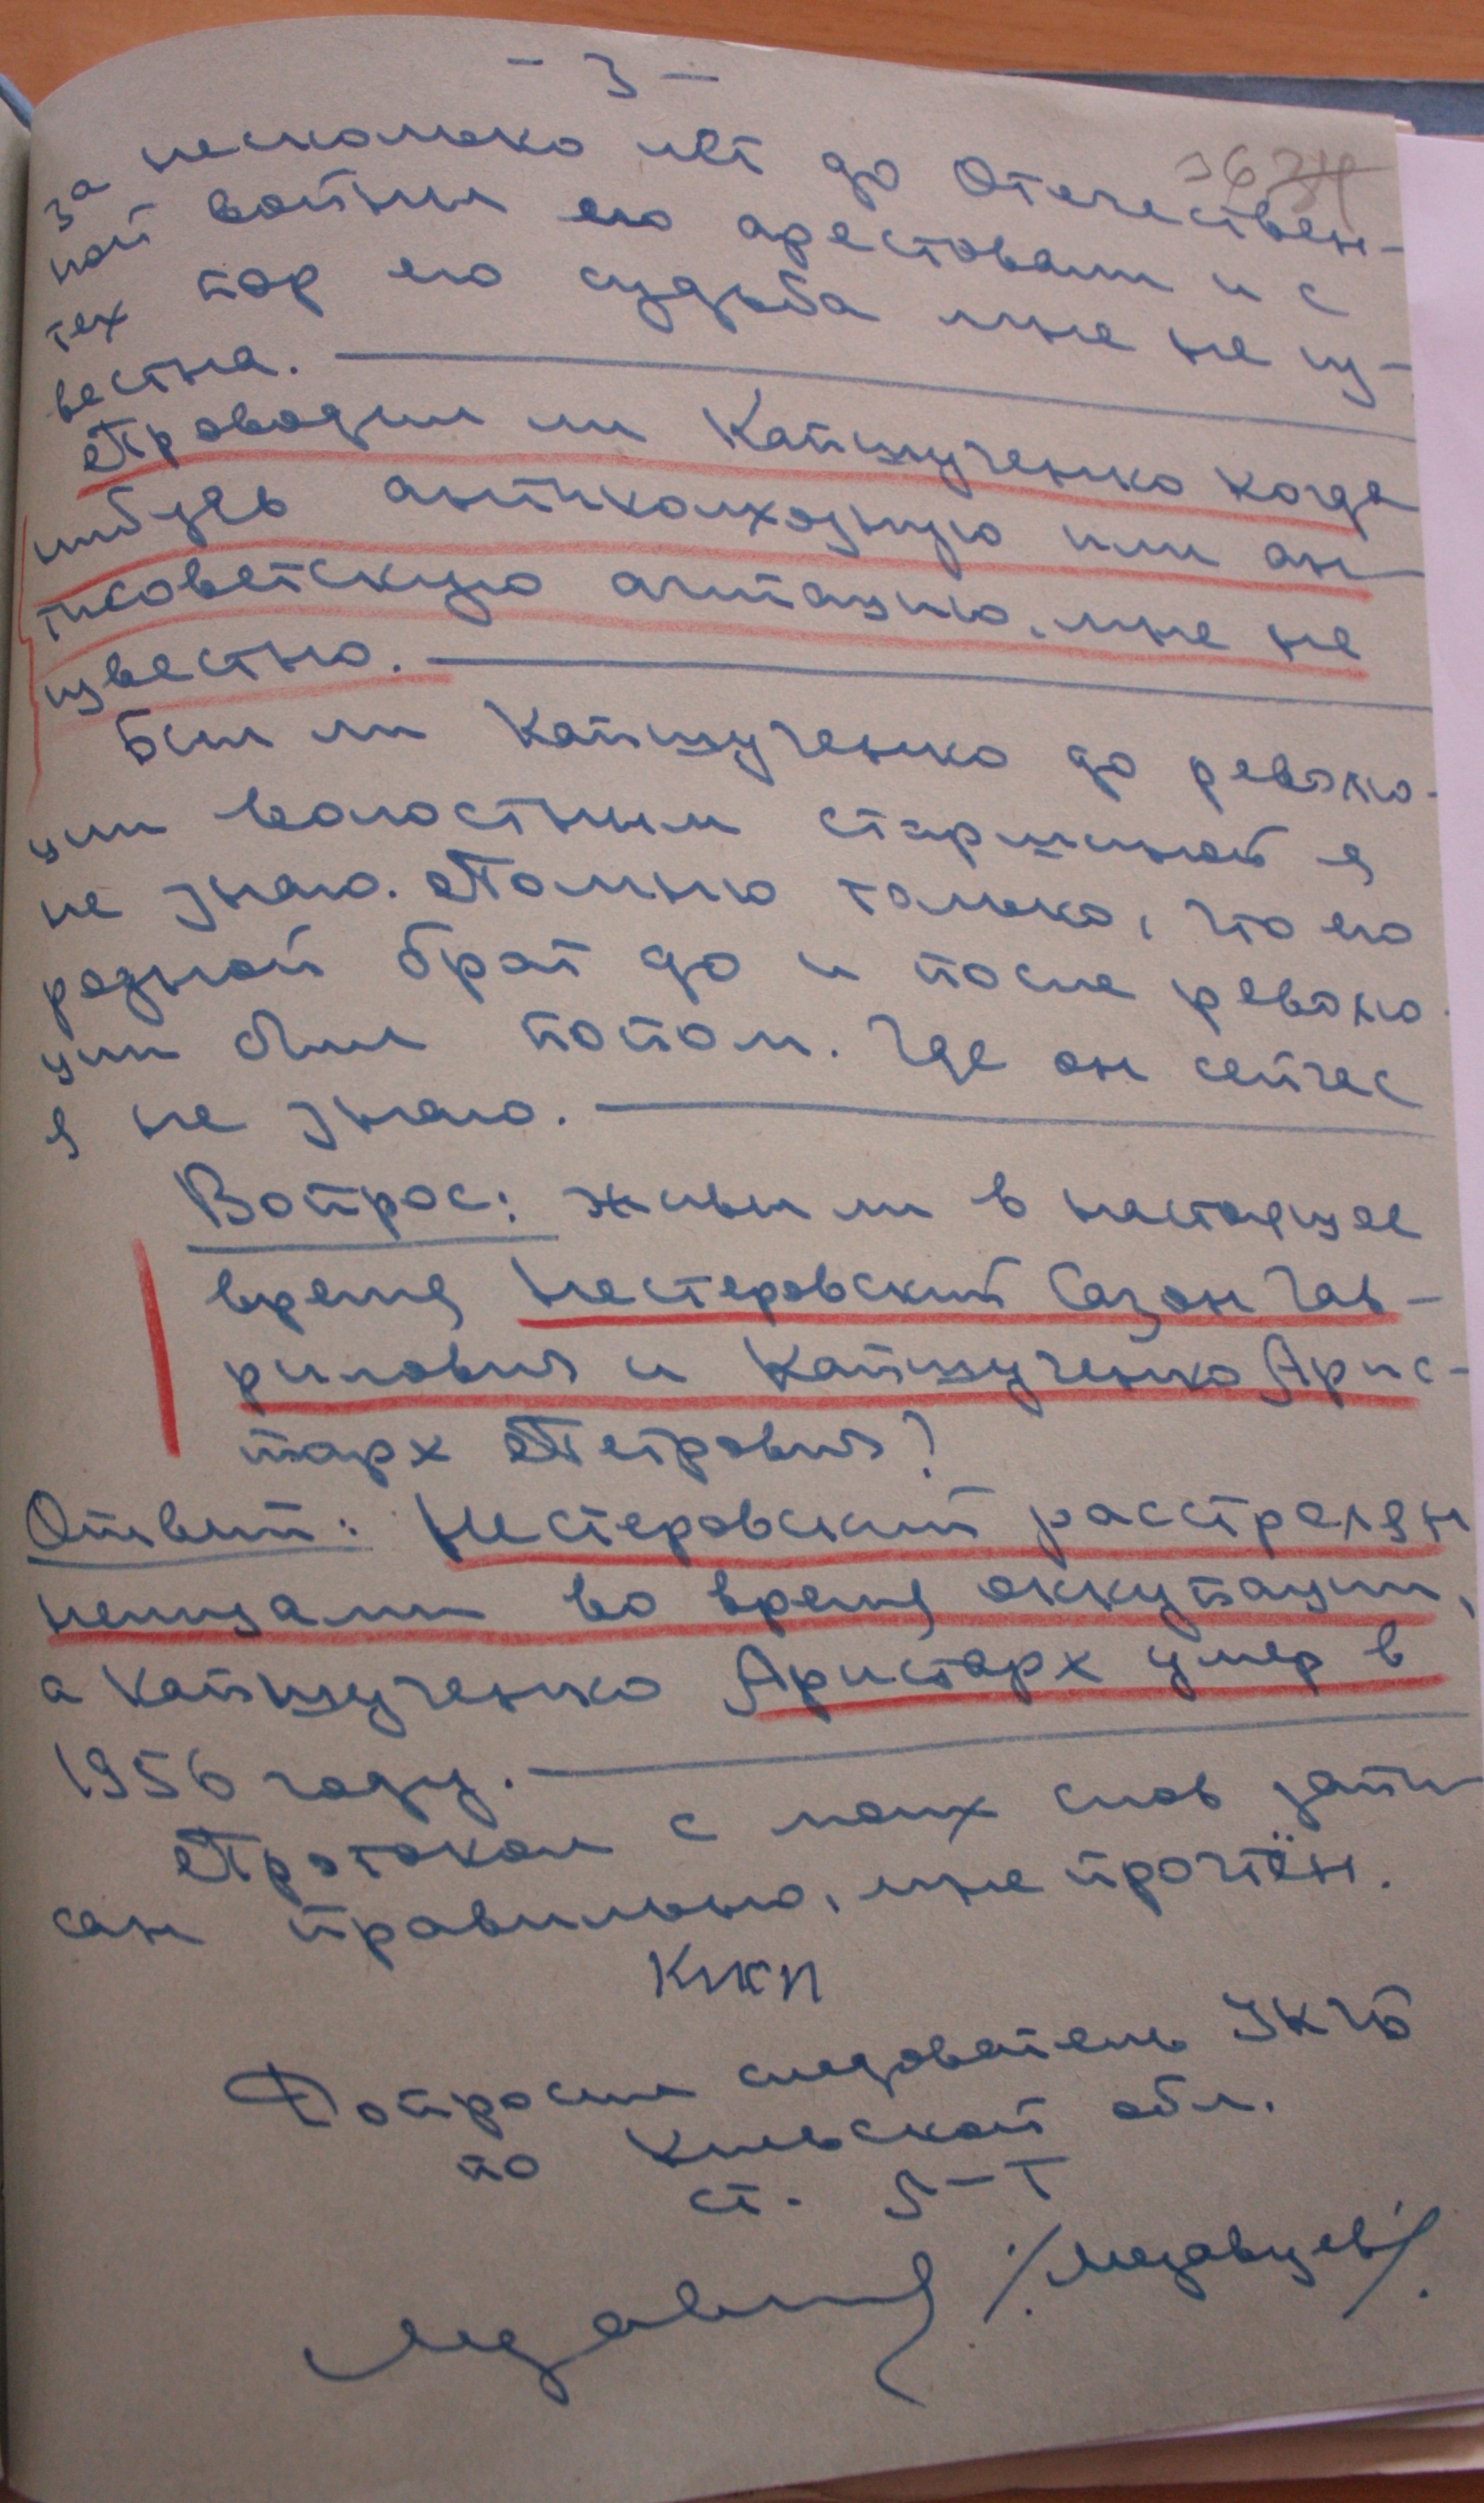 - 3 -
за несколько лет до Отечествен-
ной войны его арестовали и с
тех пор его судьба мне не из-
вестна.
Проводил ли Капшученко когда
нибудь антиколхозную или ан-
тисоветскую агитацию, мне не
известно.
Был ли Капшученко до револю-
ции волостным старшиной я
не знаю. Помню только, что его
родной брат до и после револю-
ции был попом. Где он сейчас
я не знаю.
Вопрос: Живы ли в настоящее
время Нестеровский Сазон Гав-
рилович и Капшученко Арис-
тарх Петрович?
Ответ: Нестеровский расстрелян
немцами во время оккупации,
а Капшученко Аристарх умер в
1956 году.
Протокол с моих слов запи-
сан правильно, мне прочтён.
Допросил следователь УКГБ
по Киевской обл.
ст. л-т
/Медовцев/